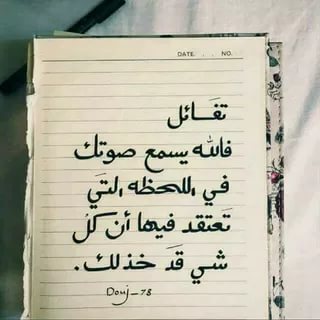 DATE. . . NO.
تفَـــائل
فالله يسمع صوتك
في اللحظه التيَ
تَعتقد فيها أن كلُ
شي قَد خذلك.
Douj_78